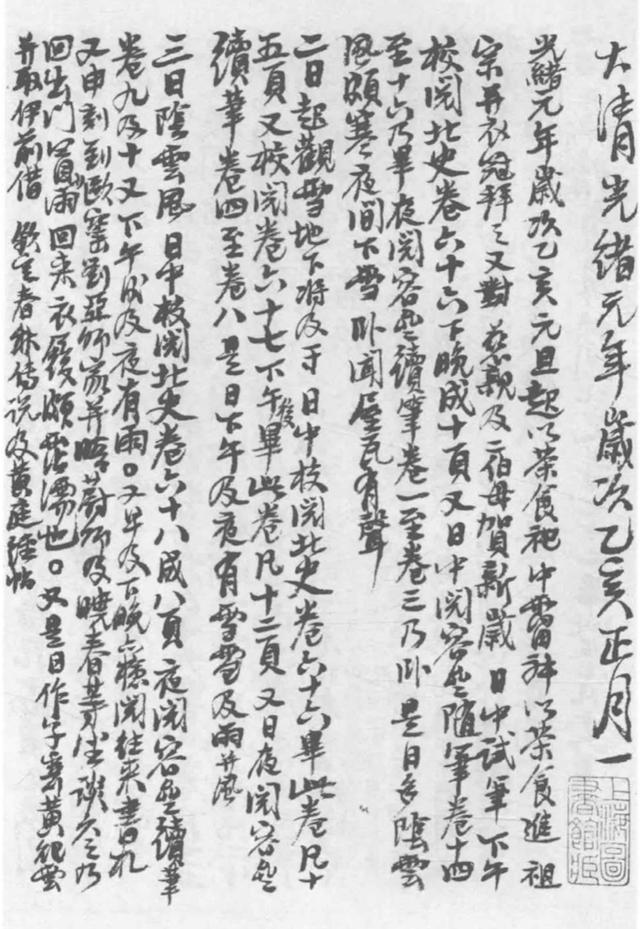 大清光緒元年歲次乙亥正月一
光緒元年歲次乙亥元旦起以茶食祀中霤神以茶食進 祖
宗并衣冠拜之又對 慈親及二伯母賀新歲 日中試筆 下午
校閱北史卷六十六下晚成十頁又日中閱容齋隨筆卷十四
至十六乃畢夜閱容齋續筆卷一至卷三乃卧 是日多陰雲
風頗寒夜間下雪 卧聞屋瓦有聲
二日起觀雪地下將及寸 日中校閱北史卷六十六畢此卷凡十
五頁又校閱卷六十七下午後畢此卷凡十二頁 又日夜閱容齋
續筆卷四至卷八 是日下午及夜有雪雪及雨并風
三日陰雲風 日中校閱北史卷六十八成八頁 夜閱容齋續筆
卷九及十又下午 及夜有雨。又早及下晚 檢閱往來書札
又申刻到 劉亞師家并晤蔚師及曉春等坐談久之乃
回出門買 雨回來衣履頗霑濡也。又是日作字寄黃紀雲
并取伊前借 欽定春秋傳說及黃庭經帖
上海圖書館藏